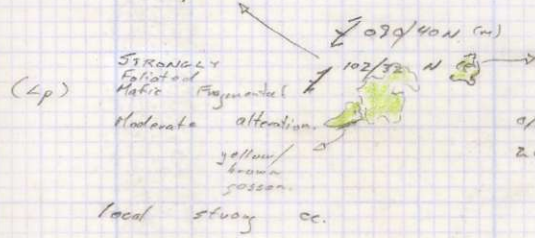 080/40N (m)
STRONGLY
Foliated
Mafic Fragmental
102/32 N cc
(Lp)
Moderate alteration.
yellow/
brown
gossan.
local strong cc.